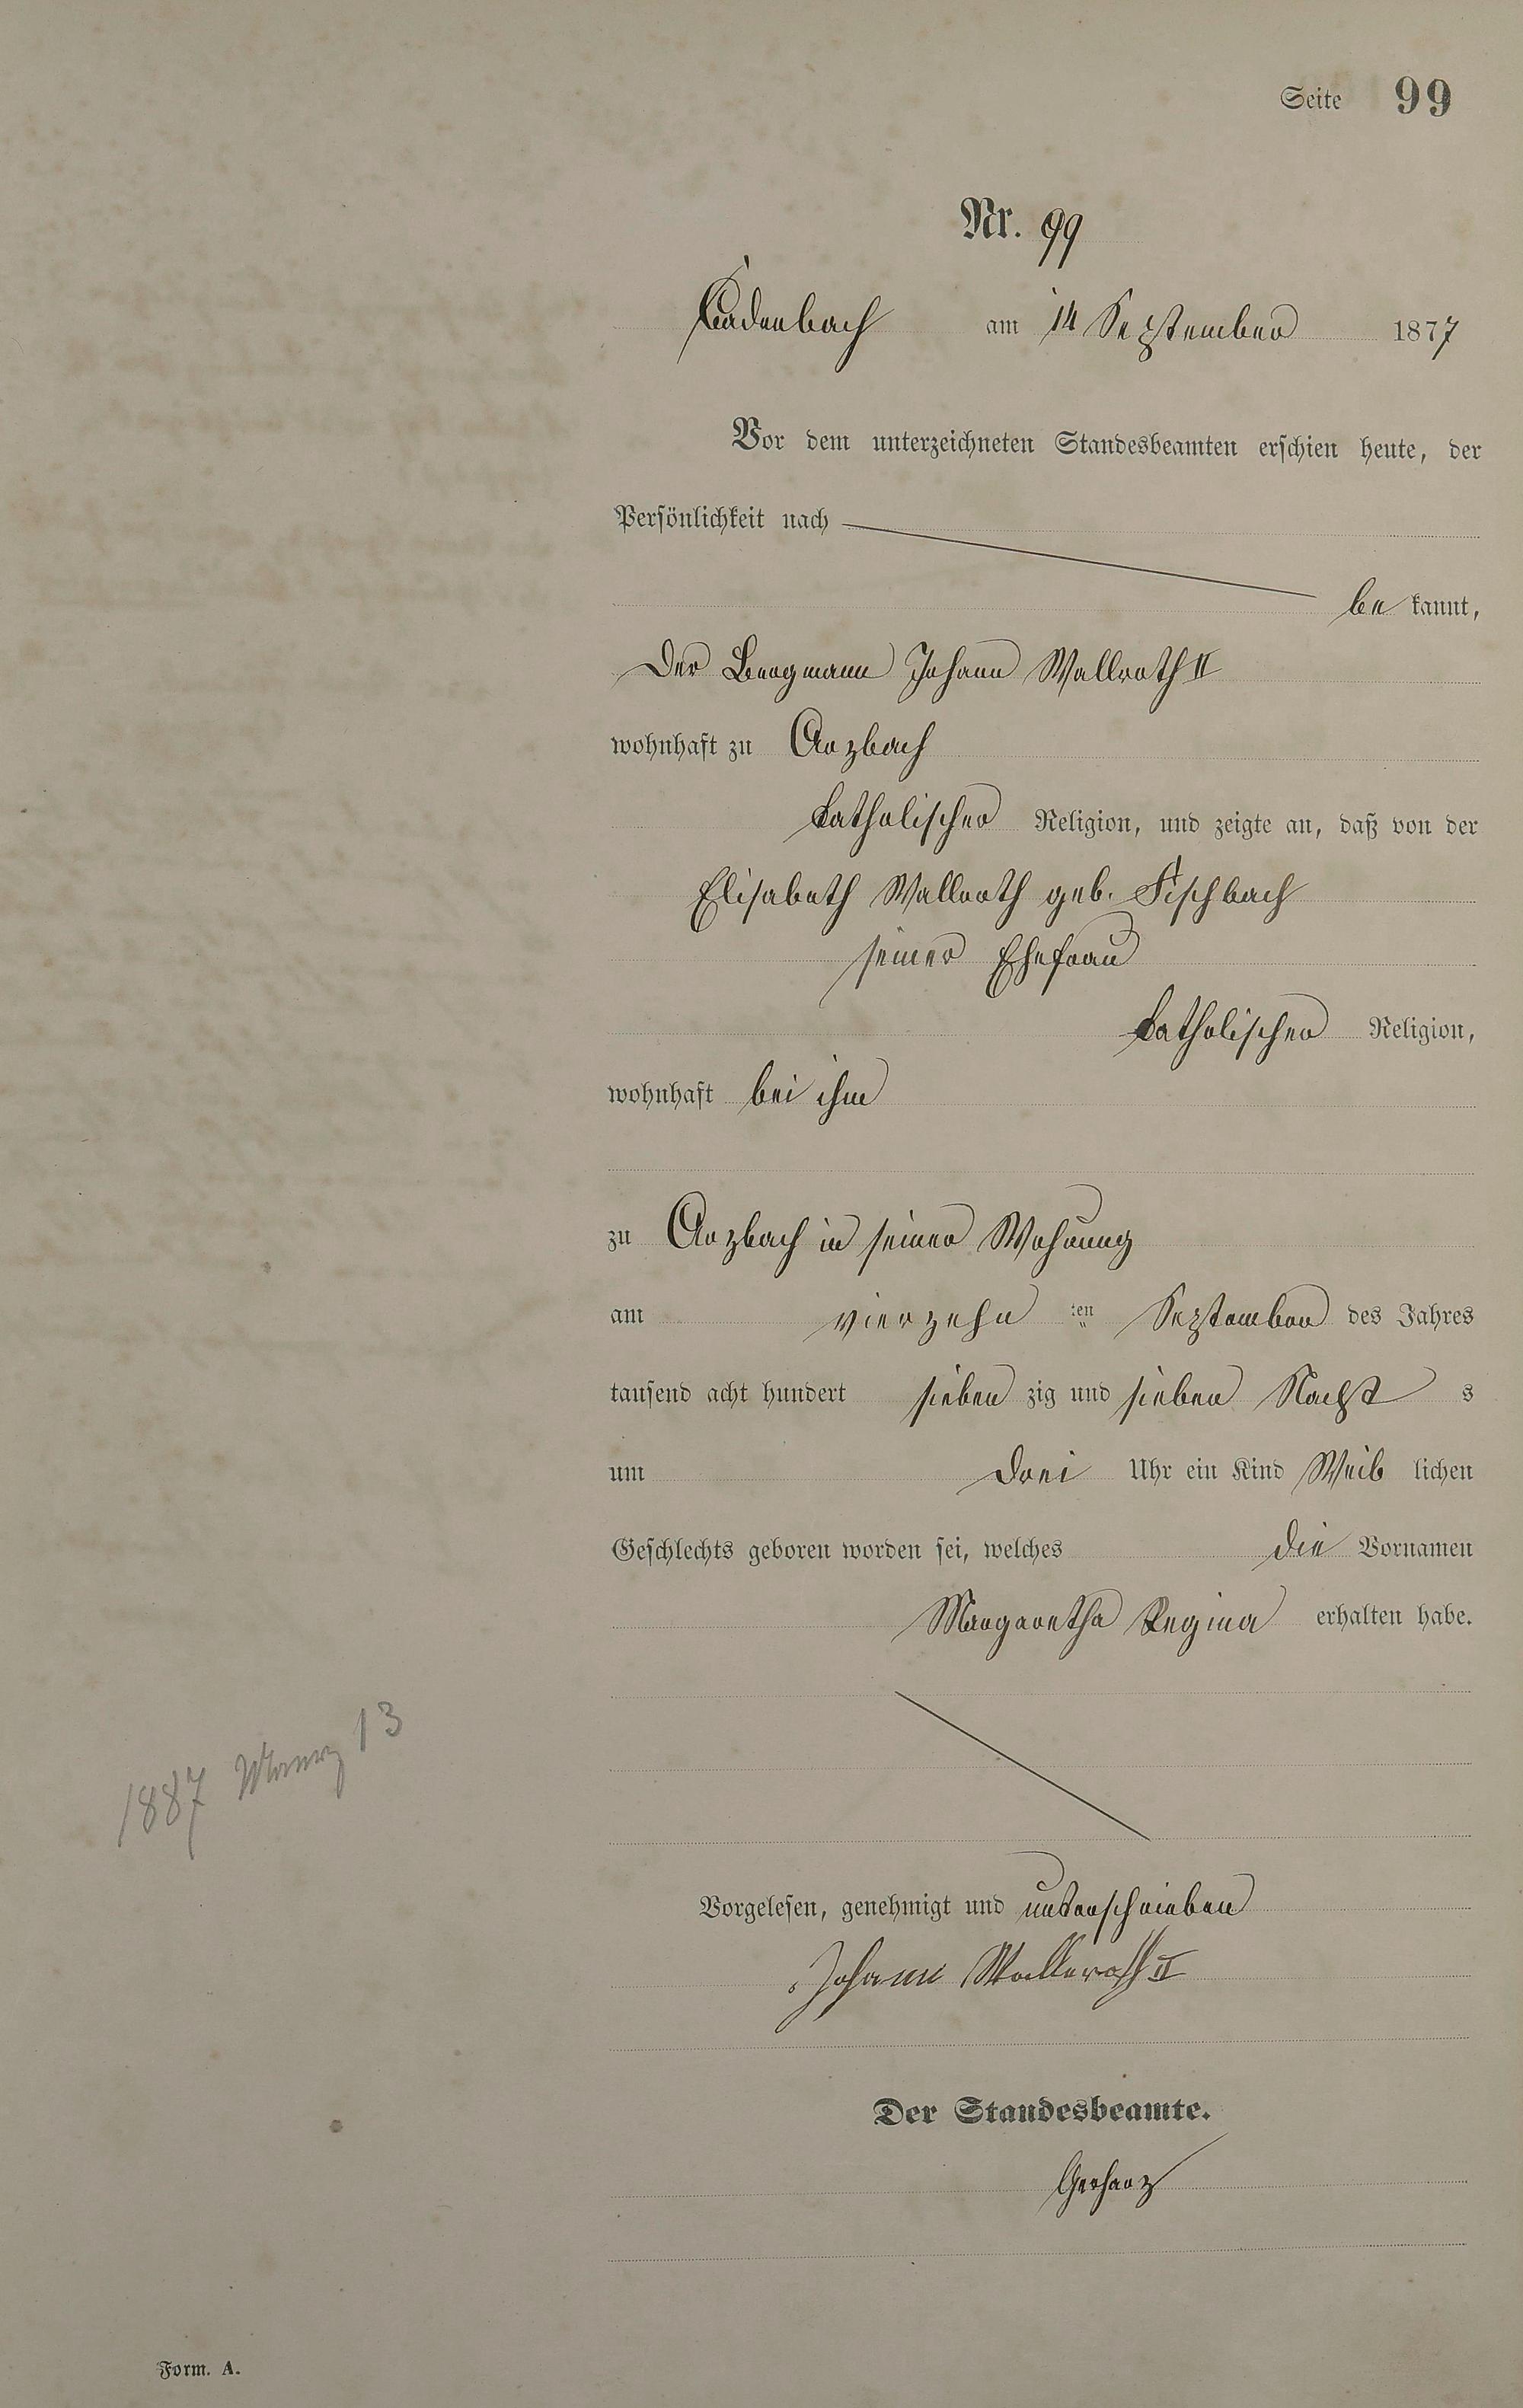 Seite 99
Nr. 99
Cadenbach am 14 September 1877
Vor dem unterzeichneten Standesbeamten erschien heute, der
Persönlichkeit nach
be kannt,
Der Bergmann Johann Wallroth II
wohnhaft zu Arzbach
katholischer Religion, und zeigte an, daß von der
Elisabeth Wallroth geb. Fischbach
seiner Ehefrau
katholischer Religion,
wohnhaft bei ihm
zu Arzbach in seiner Wohnung
am vierzehn ten September des Jahres
tausend acht hundert sieben zig und sieben Nacht s
um drei Uhr ein Kind Weib lichen
Geschlechts geboren worden sei, welches die Vornamen
Margaretha Regina erhalten habe.
1887 13
Vorgelesen, genehmigt und unterschrieben
Johann Walleroth II
Der Standesbeamte.
Gerharz
Form. A.